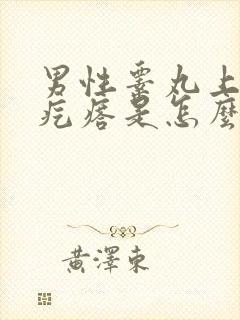 男性睪丸上
疙瘩是怎麼
黃澤東